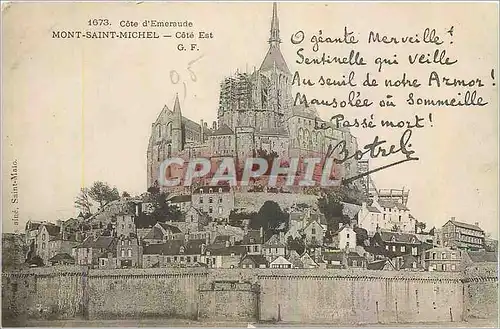 1673. Côte d'Emeraude
MONT-SAINT-MICHEL — Côté Est
G. F.
0,85
O géante Merveille!
Sentinelle qui veille
Au seuil de notre Armor!
Mausolée où sommeille
Le Passé mort!
Botrel
CPARHI
Saint-Malo.